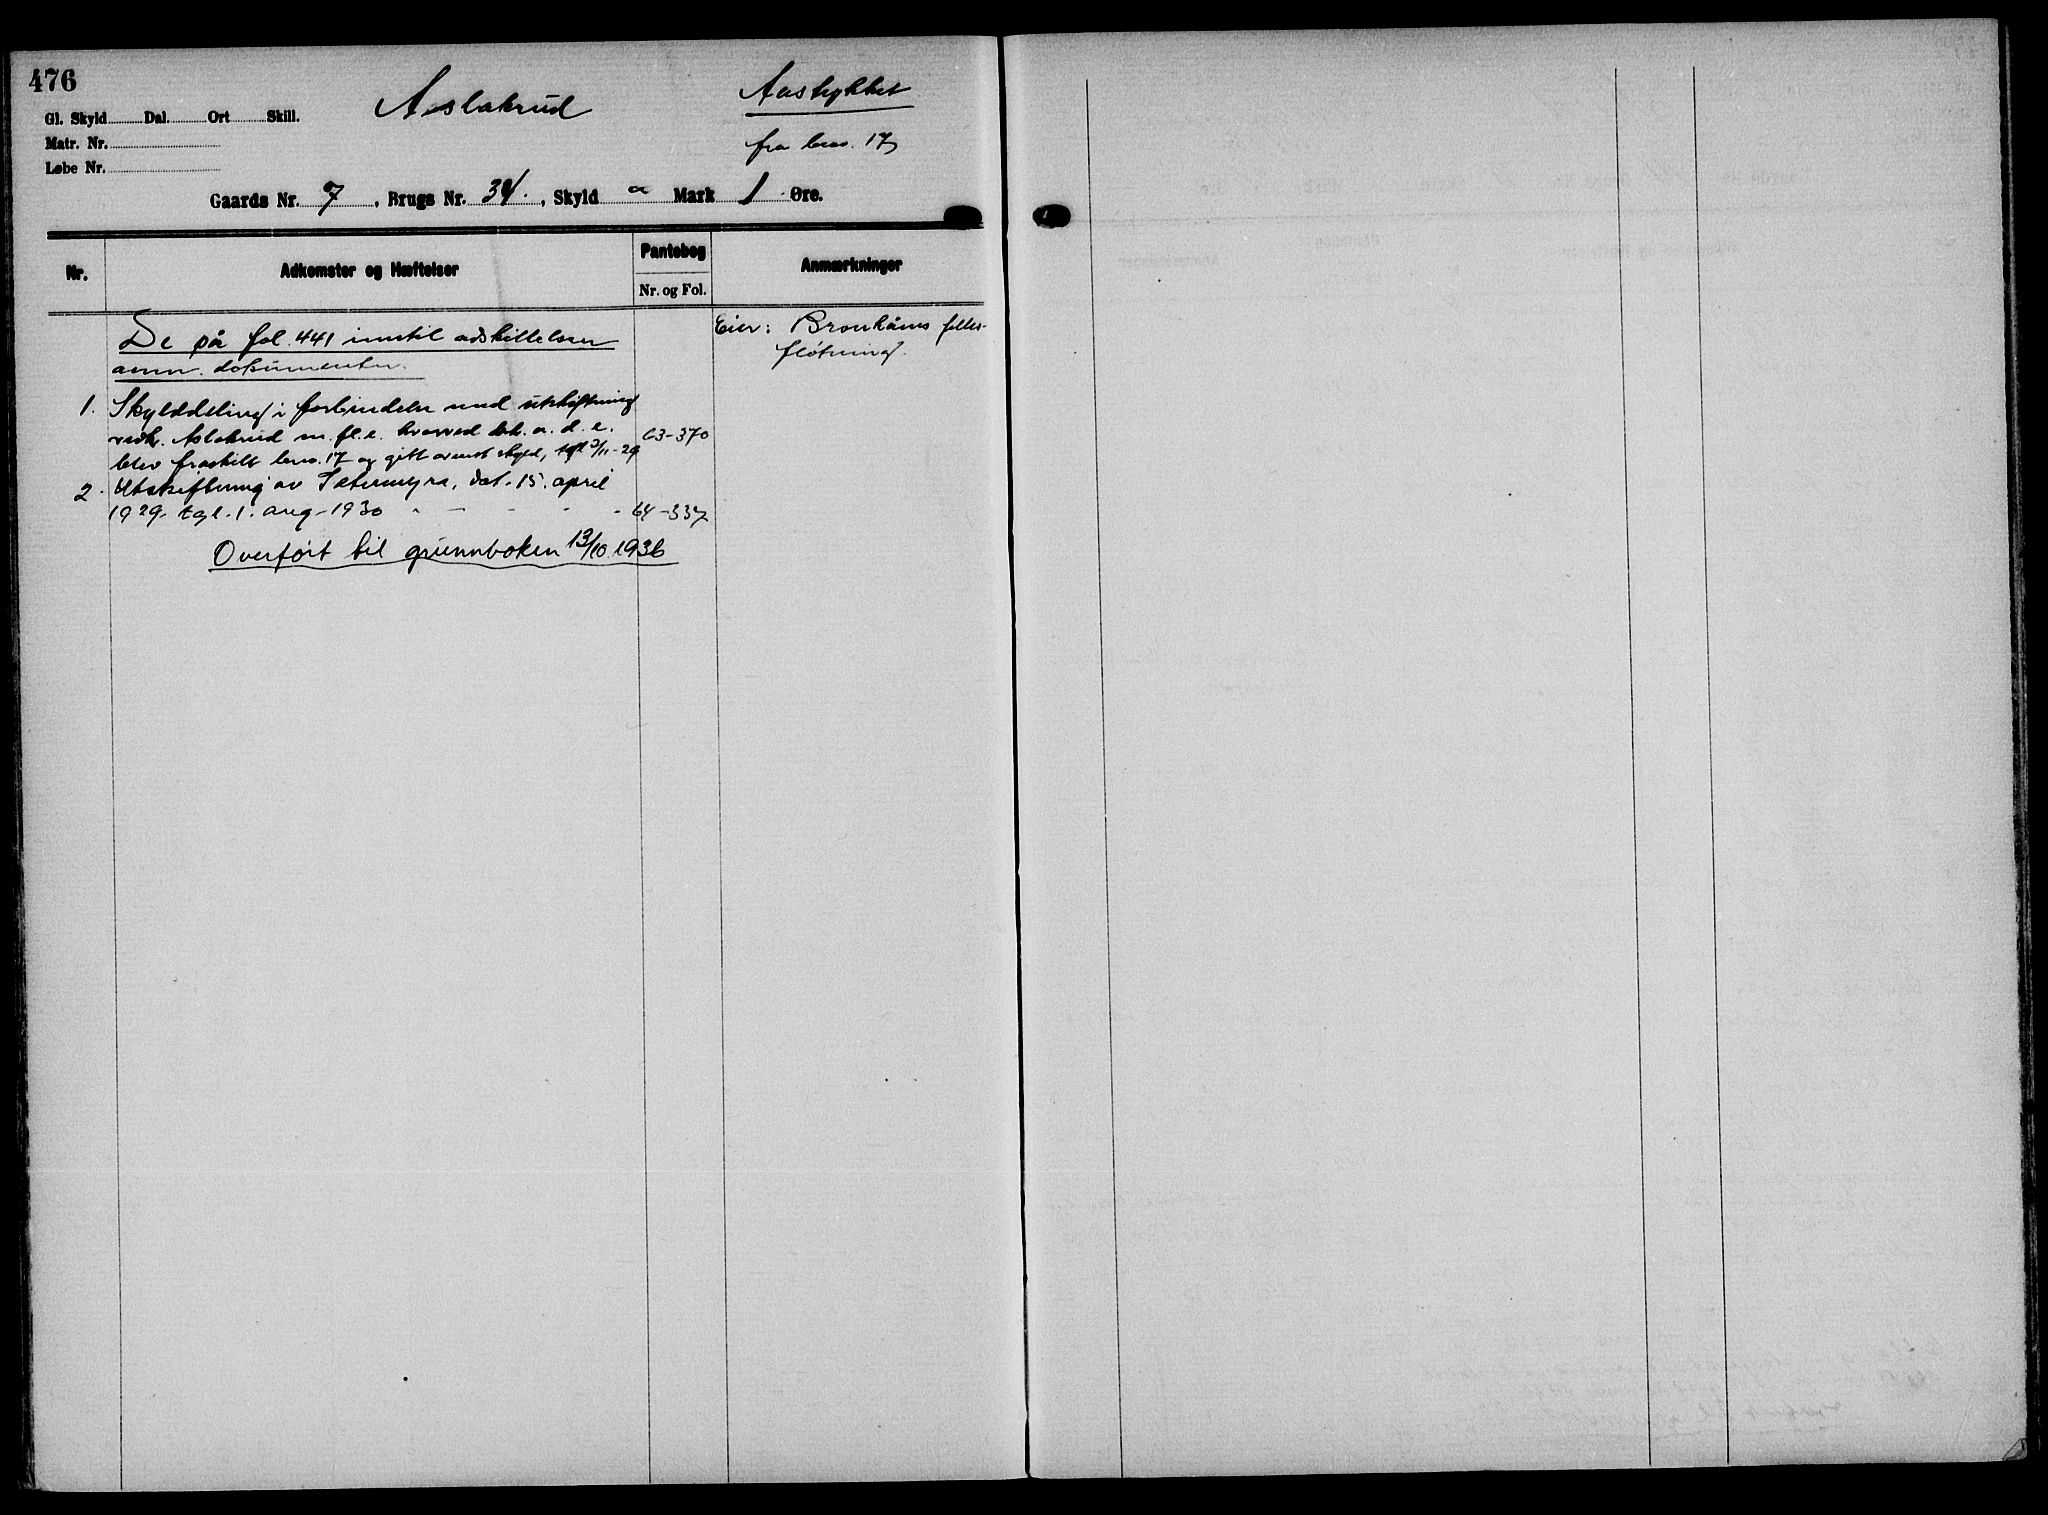 476
Aslakrud
Aastykket
Gl. Skyld Dal. Ort Skill.
fra brno. 17
Matr. Nr.
Løbe Nr.
Gaards Nr. 7, Brugs Nr. 34., Skyld Mark 1 Øre.
Nr.
Adkomster og Hæftelser
Pantebog
Nr. og Fol.
Anmærkninger
De på fol. 441 inntil adskillelsen
anm. dokumenter.
Eier: felles-
fløtning.
1. Skylddeling i forbindelse med utskiftning
vedk. Aslakrud m. fl. e. hvorved bl. a. d. e. 63-370
blev fraskilt brno. 17 og gitt skyld, tgl. 2/11-29
2. Utskiftning av Setermyra, dat. 15. april
1929. tgl. 1. aug. 1930 - - - - - 64-337
Overført til grunnboken 13/10.1936